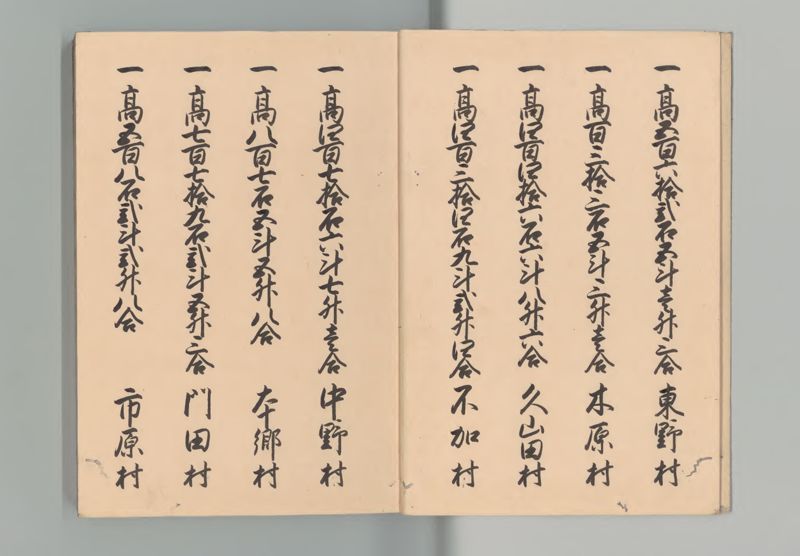 一高五百六拾弐石五斗壱升三合 東野村
一高百三拾三石五斗三升壱合 木原村
一高四百四拾六石六斗八升六合 久山田村
一高四百三拾四石九斗弐升四合 不加村
一高四百七拾石六斗七升壱合 中野村
一高八百七石五斗五升八合 本郷村
一高七百七拾九石弐斗五升三合 門田村
一高五百八石弐斗弐升八合 市原村